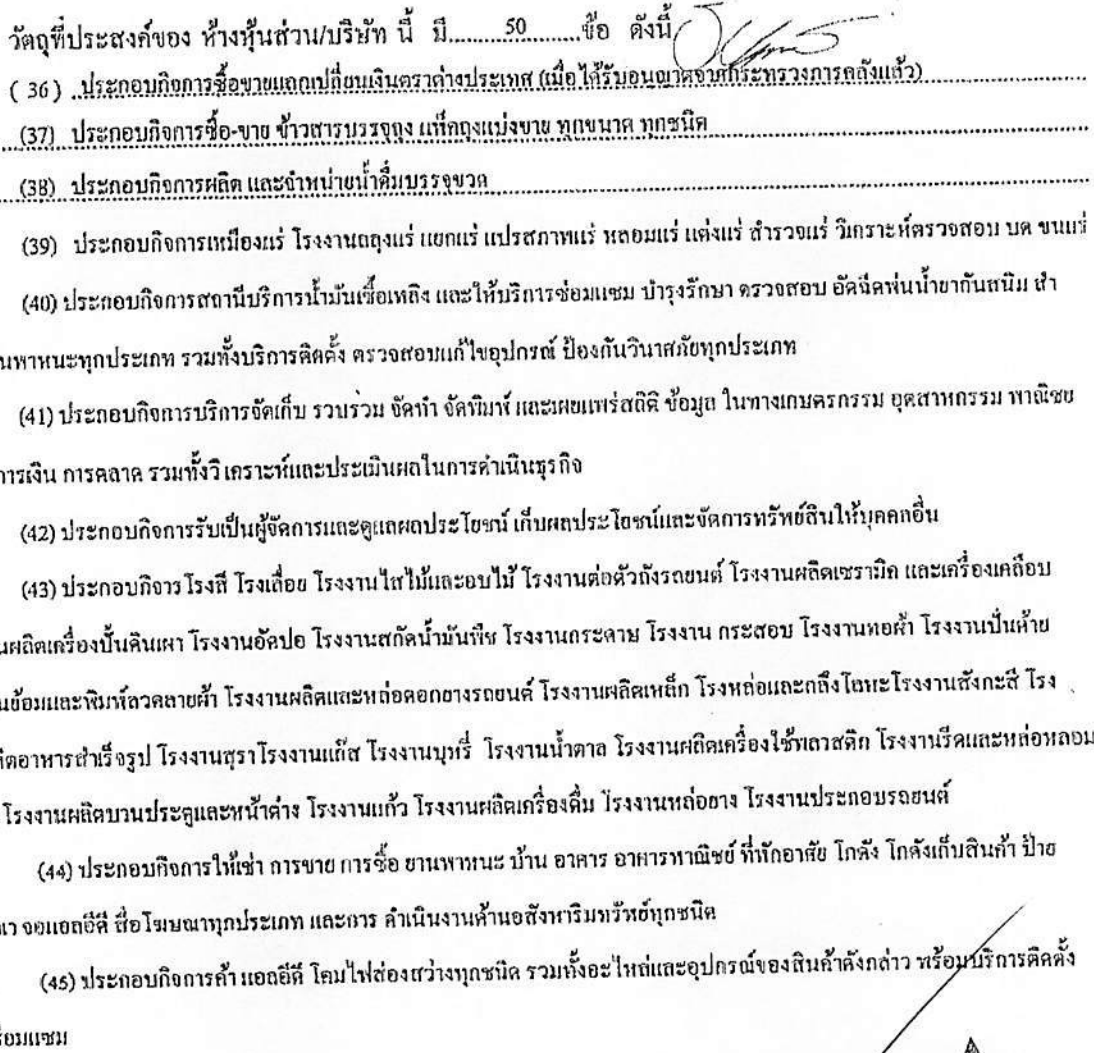 วัตถุที่ประสงค์ของ ห้างหุ้นส่วน/บริษัท นี้ มี..........50..........ข้อ ดังนี้
( 36 ) ประกอบกิจการซื้อขายแลกเปลี่ยนเงินตราต่างประเทศ (เมื่อได้รับอนุญาตจากกระทรวงการคลังแล้ว)
(37) ประกอบกิจการซื้อ-ขาย ข้าวสารบรรจุถุง แพ็คถุงแบ่งขาย ทุกขนาด ทุกชนิด
(38) ประกอบกิจการผลิต และจำหน่ายน้ำดื่มบรรจุขวด
(39) ประกอบกิจการเหมืองแร่ โรงงานถลุงแร่ แยกแร่ แปรสภาพแร่ หลอมแร่ แต่งแร่ สำรวจแร่ วิเคราะห์ตรวจสอบ บด ขนแร่
(40) ประกอบกิจการสถานีบริการน้ำมันเชื้อเพลิง และให้บริการซ่อมแซม บำรุงรักษา ตรวจสอบ อัดฉีดพ่นน้ำยากันสนิม สำ
นพาหนะทุกประเภท รวมทั้งบริการติดตั้ง ตรวจสอบแก้ไขอุปกรณ์ ป้องกันวินาศภัยทุกประเภท
(41) ประกอบกิจการบริการจัดเก็บ รวบร่วม จัดทำ จัดพิมพ์ และเผยแพร่สถิติ ข้อมูล ในทางเกษตรกรรม อุตสาหกรรม พาณิชย
การเงิน การตลาด รวมทั้งวิเคราะห์และประเมินผลในการดำเนินธุรกิจ
(42) ประกอบกิจการรับเป็นผู้จัดการและดูแลผลประโยชน์ เก็บผลประโยชน์และจัดการทรัพย์สินให้บุคคลอื่น
(43) ประกอบกิจาร โรงสี โรงเลื่อย โรงงานไสไม้และอบไม้ โรงงานต่อตัวถังรถยนต์ โรงงานผลิตเซรามิค และเครื่องเคลือบ
นผลิตเครื่องปั้นดินเผา โรงงานอัดปอ โรงงานสกัดน้ำมันพืช โรงงานกระดาษ โรงงาน กระสอบ โรงงานทอผ้า โรงงานปั่นด้าย
นย้อมและพิมพ์ลวดลายผ้า โรงงานผลิตและหล่อดอกยางรถยนต์ โรงงานผลิตเหล็ก โรงหล่อและกลึงโลหะโรงงานสังกะสี โรง
ลิตอาหารสำเร็จรูป โรงงานสุราโรงงานแก๊ส โรงงานบุหรี่ โรงงานน้ำตาล โรงงานผลิตเครื่องใช้พลาสติก โรงงานรีดและหล่อหลอม
โรงงานผลิตบานประตูและหน้าต่าง โรงงานแก้ว โรงงานผลิตเครื่องดื่ม โรงงานหล่อยาง โรงงานประกอบรถยนต์
(44) ประกอบกิจการให้เช่า การขาย การซื้อ ยานพาหนะ บ้าน อาคาร อาคารพาณิชย์ ที่พักอาศัย โกดัง โกดังเก็บสินค้า ป้าย
ณา จอแอลอีดี สื่อโฆษณาทุกประเภท และการ ดำเนินงานด้านอสังหาริมทรัพย์ทุกชนิด
(45) ประกอบกิจการค้า แอลอีดี โคมไฟส่องสว่างทุกชนิด รวมทั้งอะไหล่และอุปกรณ์ของสินค้าดังกล่าว พร้อมบริการติดตั้ง
ซ่อมแซม